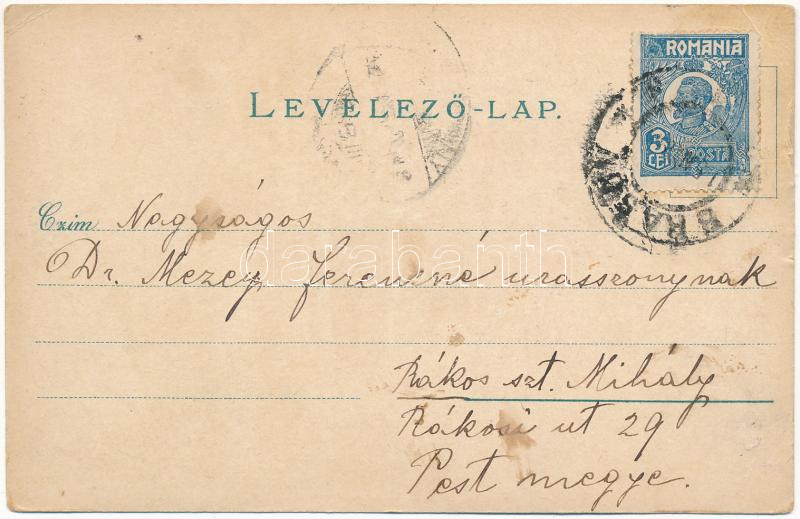 ROMANIA
LEVELEZŐ-LAP.
3
LEI
POSTA
BRASOV
Czim Nagyságos
Dr. Mezey Ferencné urasszonynak
darabanth
Rákos szt. Mihály
Rákosi ut 29
Pest megye.